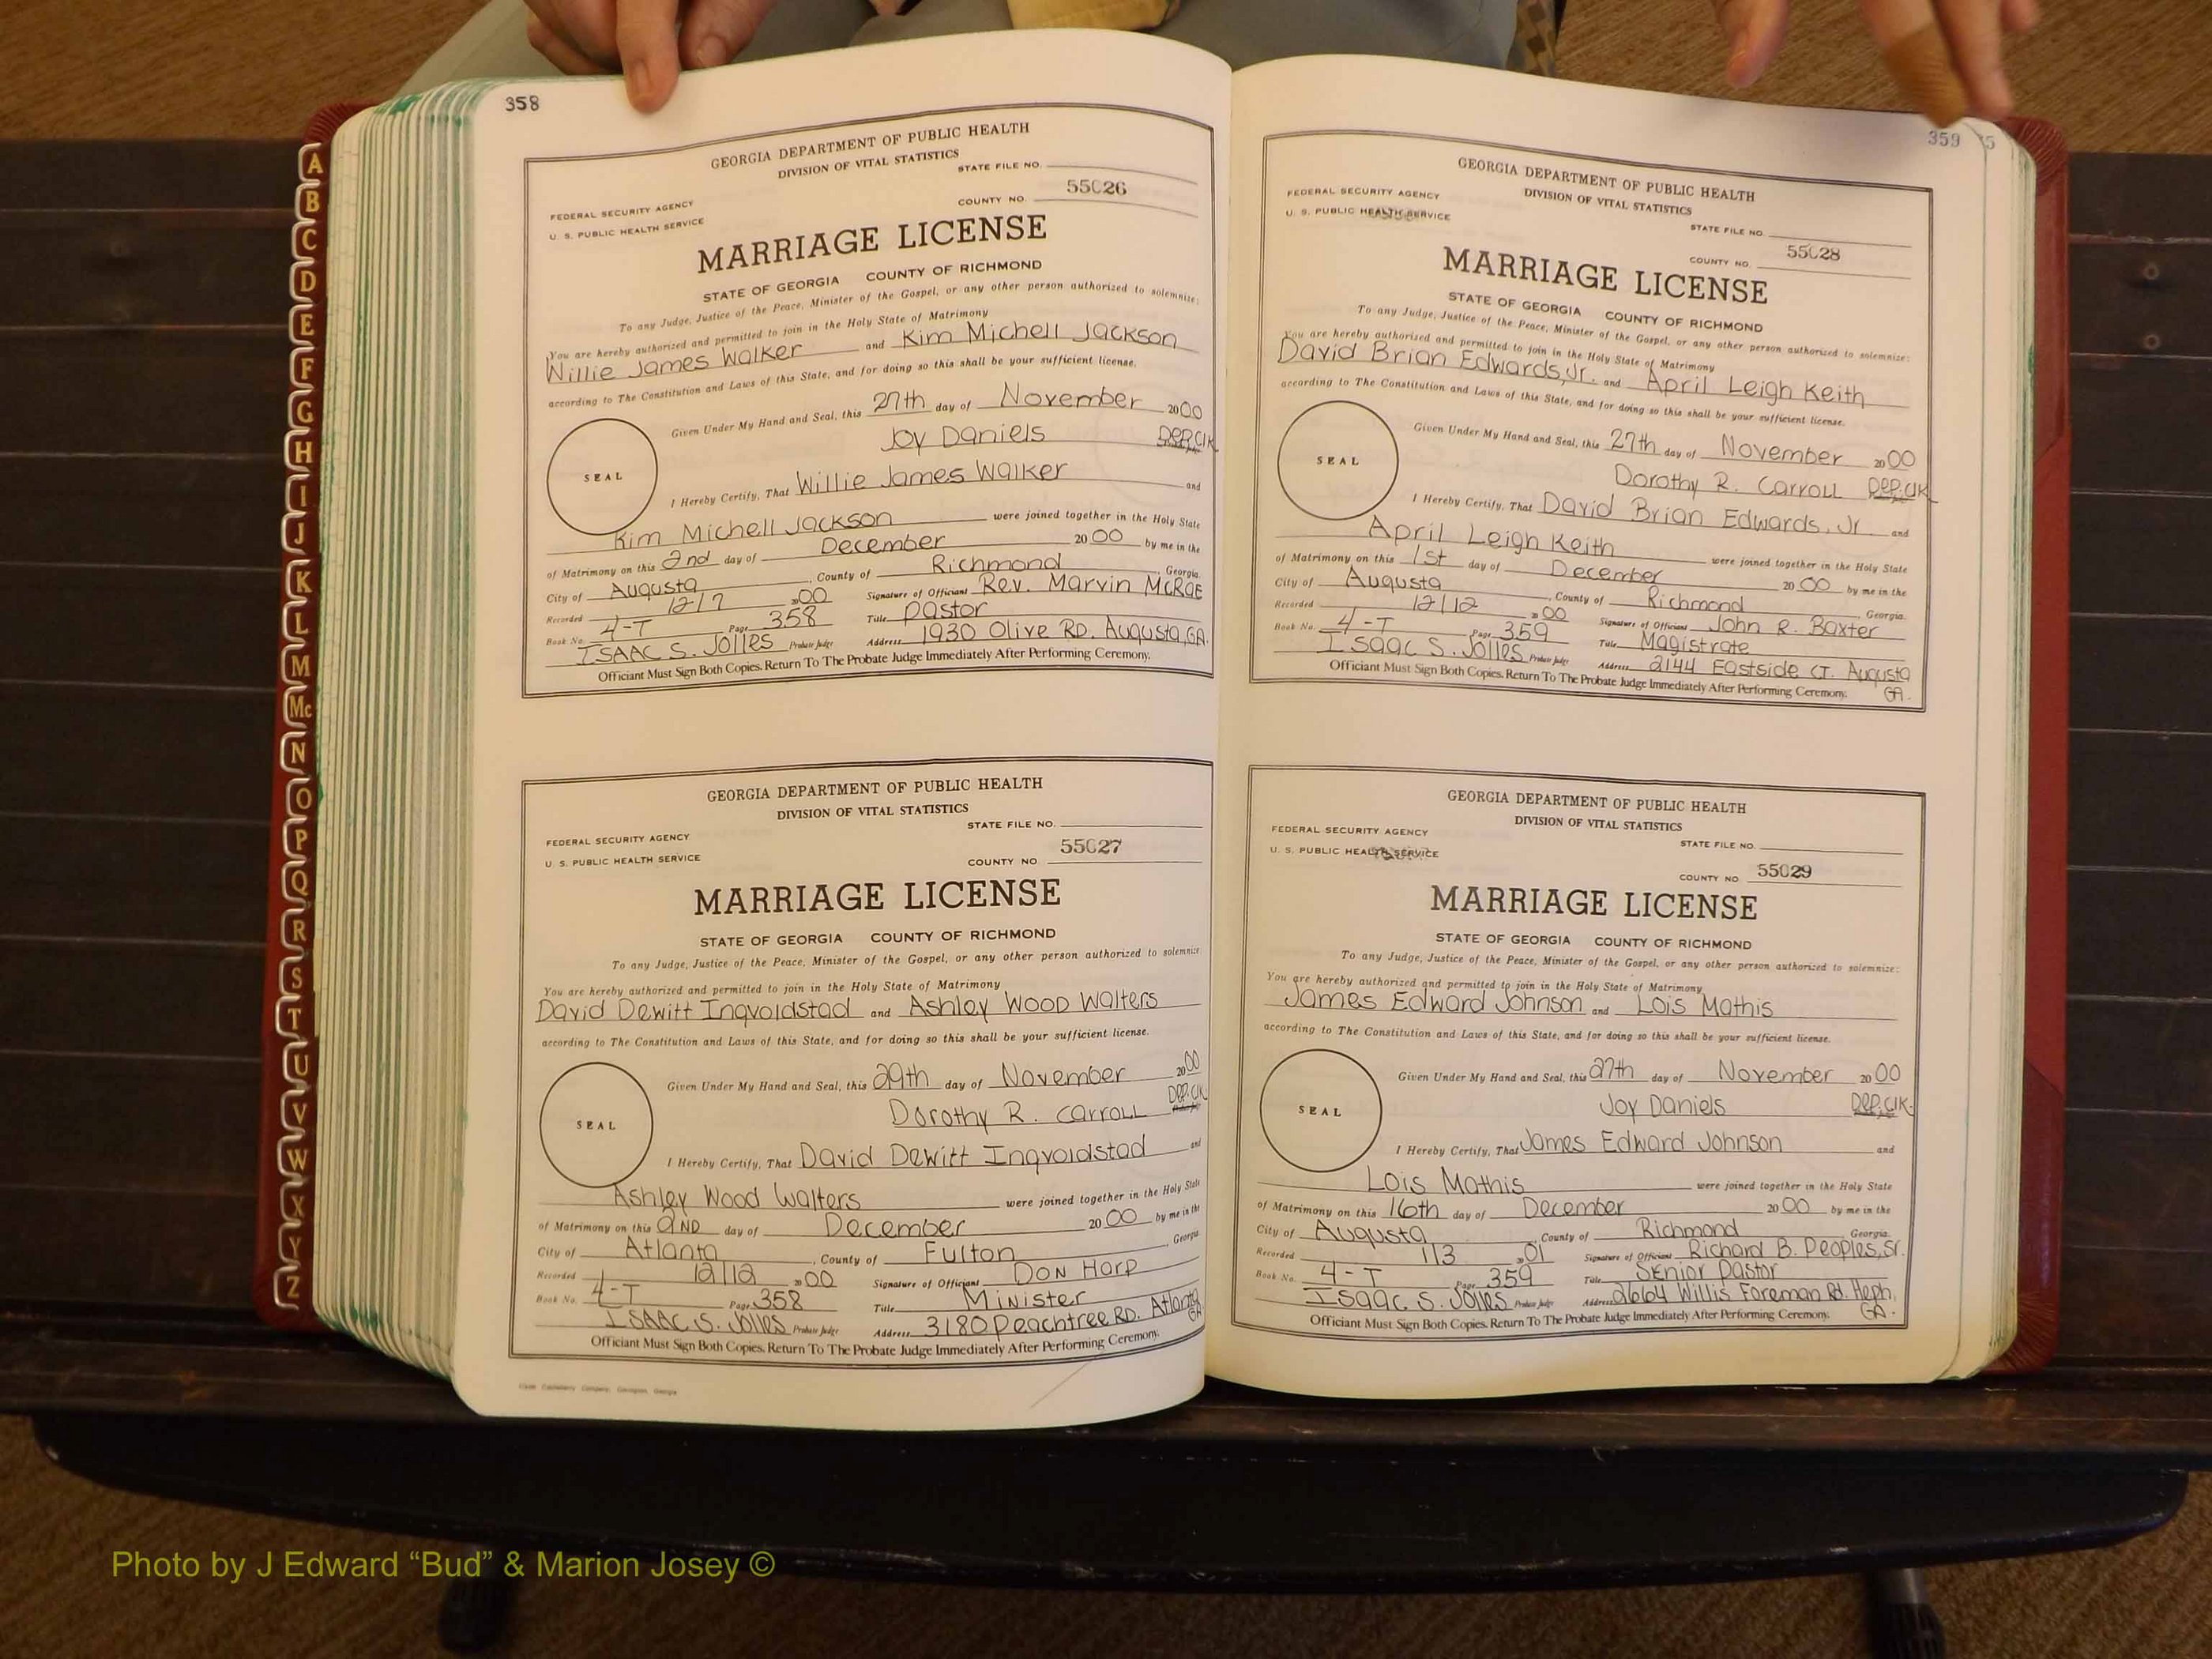 A
B
C
D
E
F
G
H
I
J
K
L
M
Mc
N
O
P
Q
R
S
T
U
V
W
X
Y
Z
358
GEORGIA DEPARTMENT OF PUBLIC HEALTH
DIVISION OF VITAL STATISTICS
STATE FILE NO.
FEDERAL SECURITY AGENCY
COUNTY NO. 55026
U. S. PUBLIC HEALTH SERVICE
MARRIAGE LICENSE
STATE OF GEORGIA COUNTY OF RICHMOND
To any Judge, Justice of the Peace, Minister of the Gospel, or any other person authorized to solemnize:
You are hereby authorized and permitted to join in the Holy State of Matrimony
Willie James Walker and Kim Michell Jackson
according to The Constitution and Laws of this State, and for doing so this shall be your sufficient license.
Given Under My Hand and Seal, this 27th day of November 2000
Joy Daniels Dep. Clk
SEAL
I Hereby Certify, That Willie James Walker and
Kim Michell Jackson were joined together in the Holy State
of Matrimony on this 2nd day of December 2000 by me in the
City of Augusta, County of Richmond, Georgia.
Recorded 12/7 00 Signature of Officiant Rev. Marvin McRae
Book No. 4-T Page 358 Title Pastor
Isaac S. Jolles Probate Judge Address 1930 Olive RD. Augusta, GA.
Officiant Must Sign Both Copies. Return To The Probate Judge Immediately After Performing Ceremony.
GEORGIA DEPARTMENT OF PUBLIC HEALTH
DIVISION OF VITAL STATISTICS
STATE FILE NO.
FEDERAL SECURITY AGENCY
COUNTY NO. 55027
U. S. PUBLIC HEALTH SERVICE
MARRIAGE LICENSE
STATE OF GEORGIA COUNTY OF RICHMOND
To any Judge, Justice of the Peace, Minister of the Gospel, or any other person authorized to solemnize:
You are hereby authorized and permitted to join in the Holy State of Matrimony
David Dewitt Ingvoldstad and Ashley Wood Walters
according to The Constitution and Laws of this State, and for doing so this shall be your sufficient license.
Given Under My Hand and Seal, this 29th day of November 2000
Dorothy R. Carroll Dep. Clk
SEAL
I Hereby Certify, That David Dewitt Ingvoldstad and
Ashley Wood Walters were joined together in the Holy State
of Matrimony on this 2ND day of December 2000 by me in the
City of Atlanta, County of Fulton, Georgia
Recorded 12/12 2000 Signature of Officiant Don Harp
Book No. 4-T Page 358 Title Minister
Isaac S. Jolles Probate Judge Address 3180 Peachtree RD. Atlanta GA
Officiant Must Sign Both Copies. Return To The Probate Judge Immediately After Performing Ceremony.
359
GEORGIA DEPARTMENT OF PUBLIC HEALTH
DIVISION OF VITAL STATISTICS
FEDERAL SECURITY AGENCY
U. S. PUBLIC HEALTH SERVICE
STATE FILE NO.
COUNTY NO. 55028
MARRIAGE LICENSE
STATE OF GEORGIA COUNTY OF RICHMOND
To any Judge, Justice of the Peace, Minister of the Gospel, or any other person authorized to solemnize:
You are hereby authorized and permitted to join in the Holy State of Matrimony
David Brian Edwards, Jr. and April Leigh Keith
according to The Constitution and Laws of this State, and for doing so this shall be your sufficient license.
Given Under My Hand and Seal, this 27th day of November 2000
Dorothy R. Carroll Dep. Clk
SEAL
I Hereby Certify, That David Brian Edwards, Jr. and
April Leigh Keith were joined together in the Holy State
of Matrimony on this 1st day of December 2000 by me in the
City of Augusta, County of Richmond, Georgia.
Recorded 12/12 2000 Signature of Officiant John R. Baxter
Book No. 4-T Page 359 Title Magistrate
Isaac S. Jolles Probate Judge Address 2144 Eastside CT. Augusta GA.
Officiant Must Sign Both Copies. Return To The Probate Judge Immediately After Performing Ceremony.
GEORGIA DEPARTMENT OF PUBLIC HEALTH
DIVISION OF VITAL STATISTICS
FEDERAL SECURITY AGENCY
STATE FILE NO.
U. S. PUBLIC HEALTH SERVICE
COUNTY NO 55029
MARRIAGE LICENSE
STATE OF GEORGIA COUNTY OF RICHMOND
To any Judge, Justice of the Peace, Minister of the Gospel, or any other person authorized to solemnize:
You are hereby authorized and permitted to join in the Holy State of Matrimony
James Edward Johnson and Lois Mathis
according to The Constitution and Laws of this State, and for doing so this shall be your sufficient license.
Given Under My Hand and Seal, this 27th day of November 2000
Joy Daniels Dep. Clk.
SEAL
I Hereby Certify, That James Edward Johnson and
Lois Mathis were joined together in the Holy State
of Matrimony on this 16th day of December 2000 by me in the
City of Augusta, County of Richmond, Georgia.
Recorded 1/3 2001 Signature of Officiant Richard B. Peoples, Sr.
Book No. 4-T Page 359 Title Senior Pastor
Isaac S. Jolles Probate Judge Address 2664 Willis Foreman Rd. Heph, GA.
Officiant Must Sign Both Copies. Return To The Probate Judge Immediately After Performing Ceremony.
Photo by J Edward “Bud” & Marion Josey ©